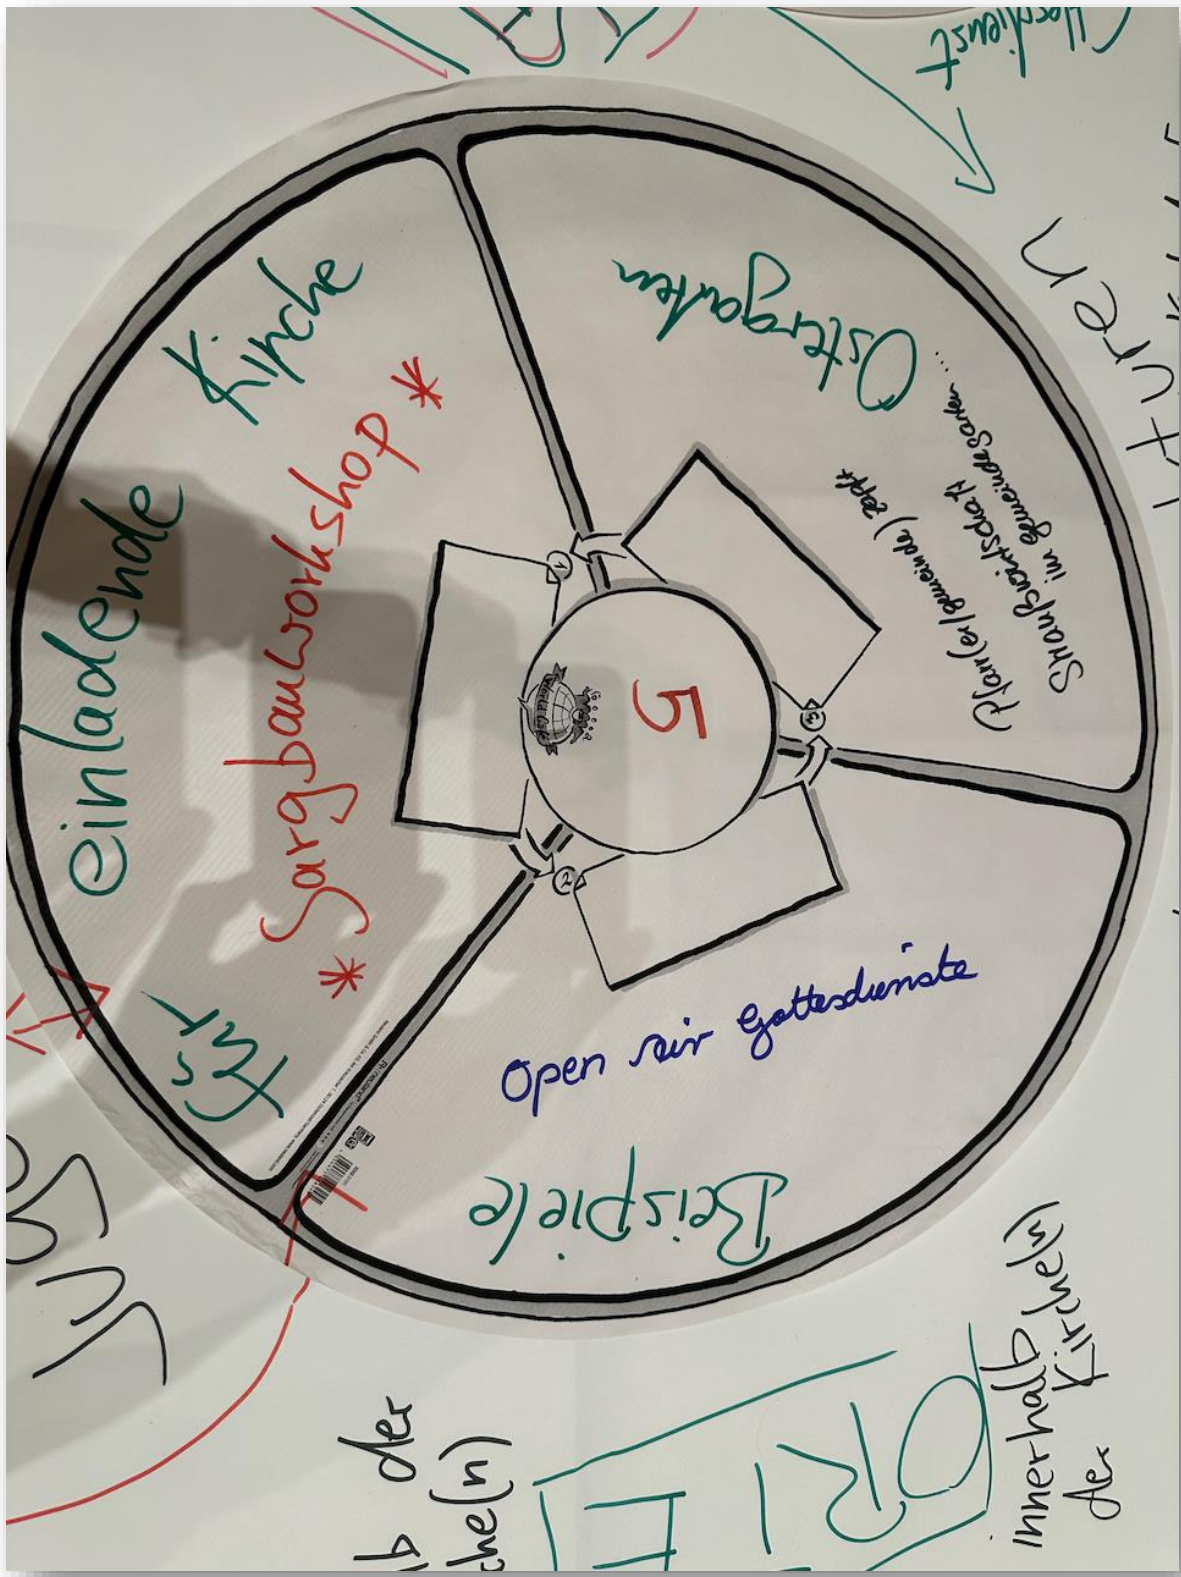 Beispiele
für
einladende
Kirche
* Sargbauworkshop *
Ostergarten
Pfarr(er/gemeinde) zapft
Straußwirtschaft
im Gemeindegarten....
Open air Gottesdienste
5
World Café
1
2
3
neuland
innerhalb
der Kirche(n)
der
che(n)
ORTE